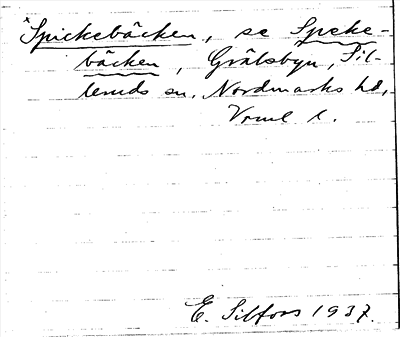 Spickebäcken, se Speke-
bäcken, Grälsbyn, Sil-
leruds sn, Nordmarks hd,
Vrml l.
E. Silfors 1937.